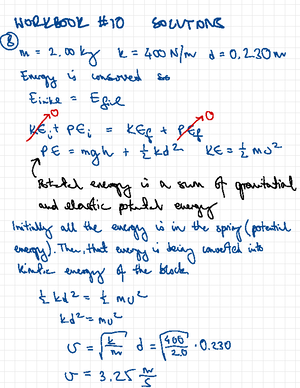 WORKBOOK #10 SOLUTIONS
8
m = 2.00 kg k = 400 N/m d = 0.230 m
Energy is conserved so
E initial = E final
0 0
KEi + PEi = KEf + PEf
PE = mgh + 1/2 kd² KE = 1/2 mv²
Potential energy is a sum of gravitational
and elastic potential energy
Initially all the energy is in the spring (potential
energy). Then, that energy is being converted into
kinetic energy of the block.
1/2 kd² = 1/2 mv²
kd² = mv²
v = √(k/m) d = √(400/2.0) · 0.230
v = 3.25 m/s